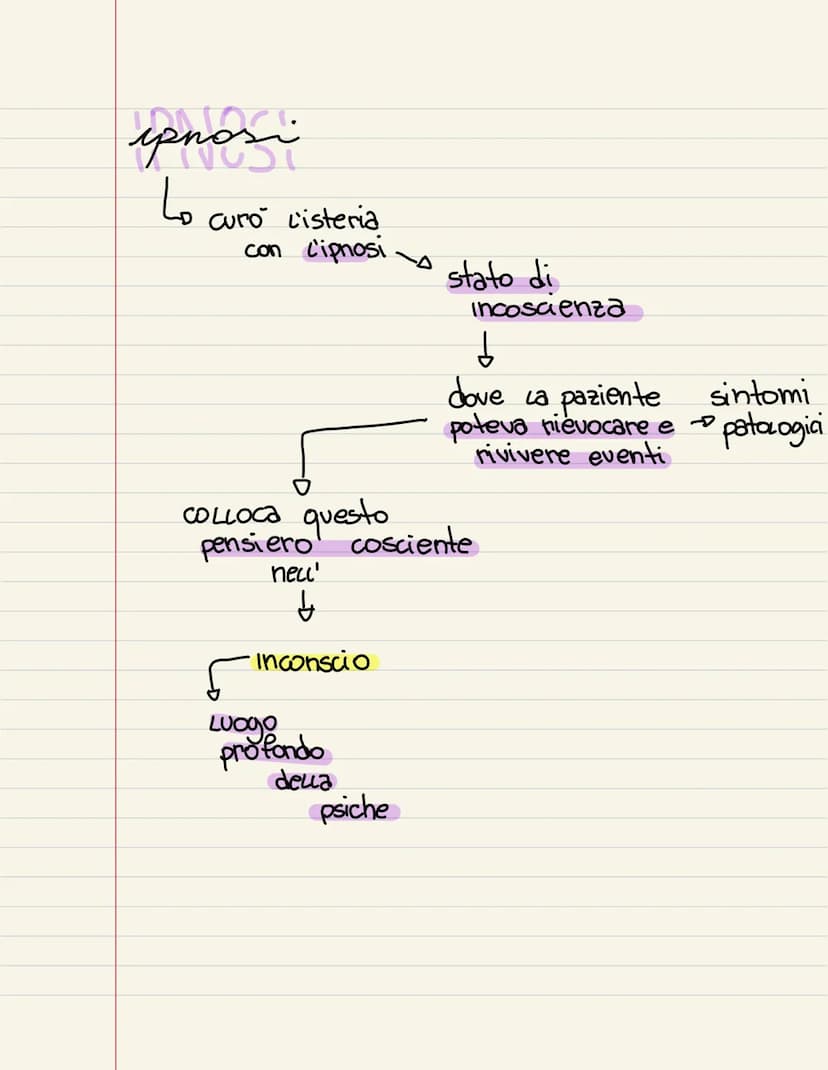 IPNOSI
ipnosi
curò l'isteria
con l'ipnosi
stato di
incoscienza
dove la paziente
poteva rievocare e
rivivere eventi
sintomi
patologici
colloca questo
pensiero cosciente
nell'
inconscio
luogo
profondo
della
psiche